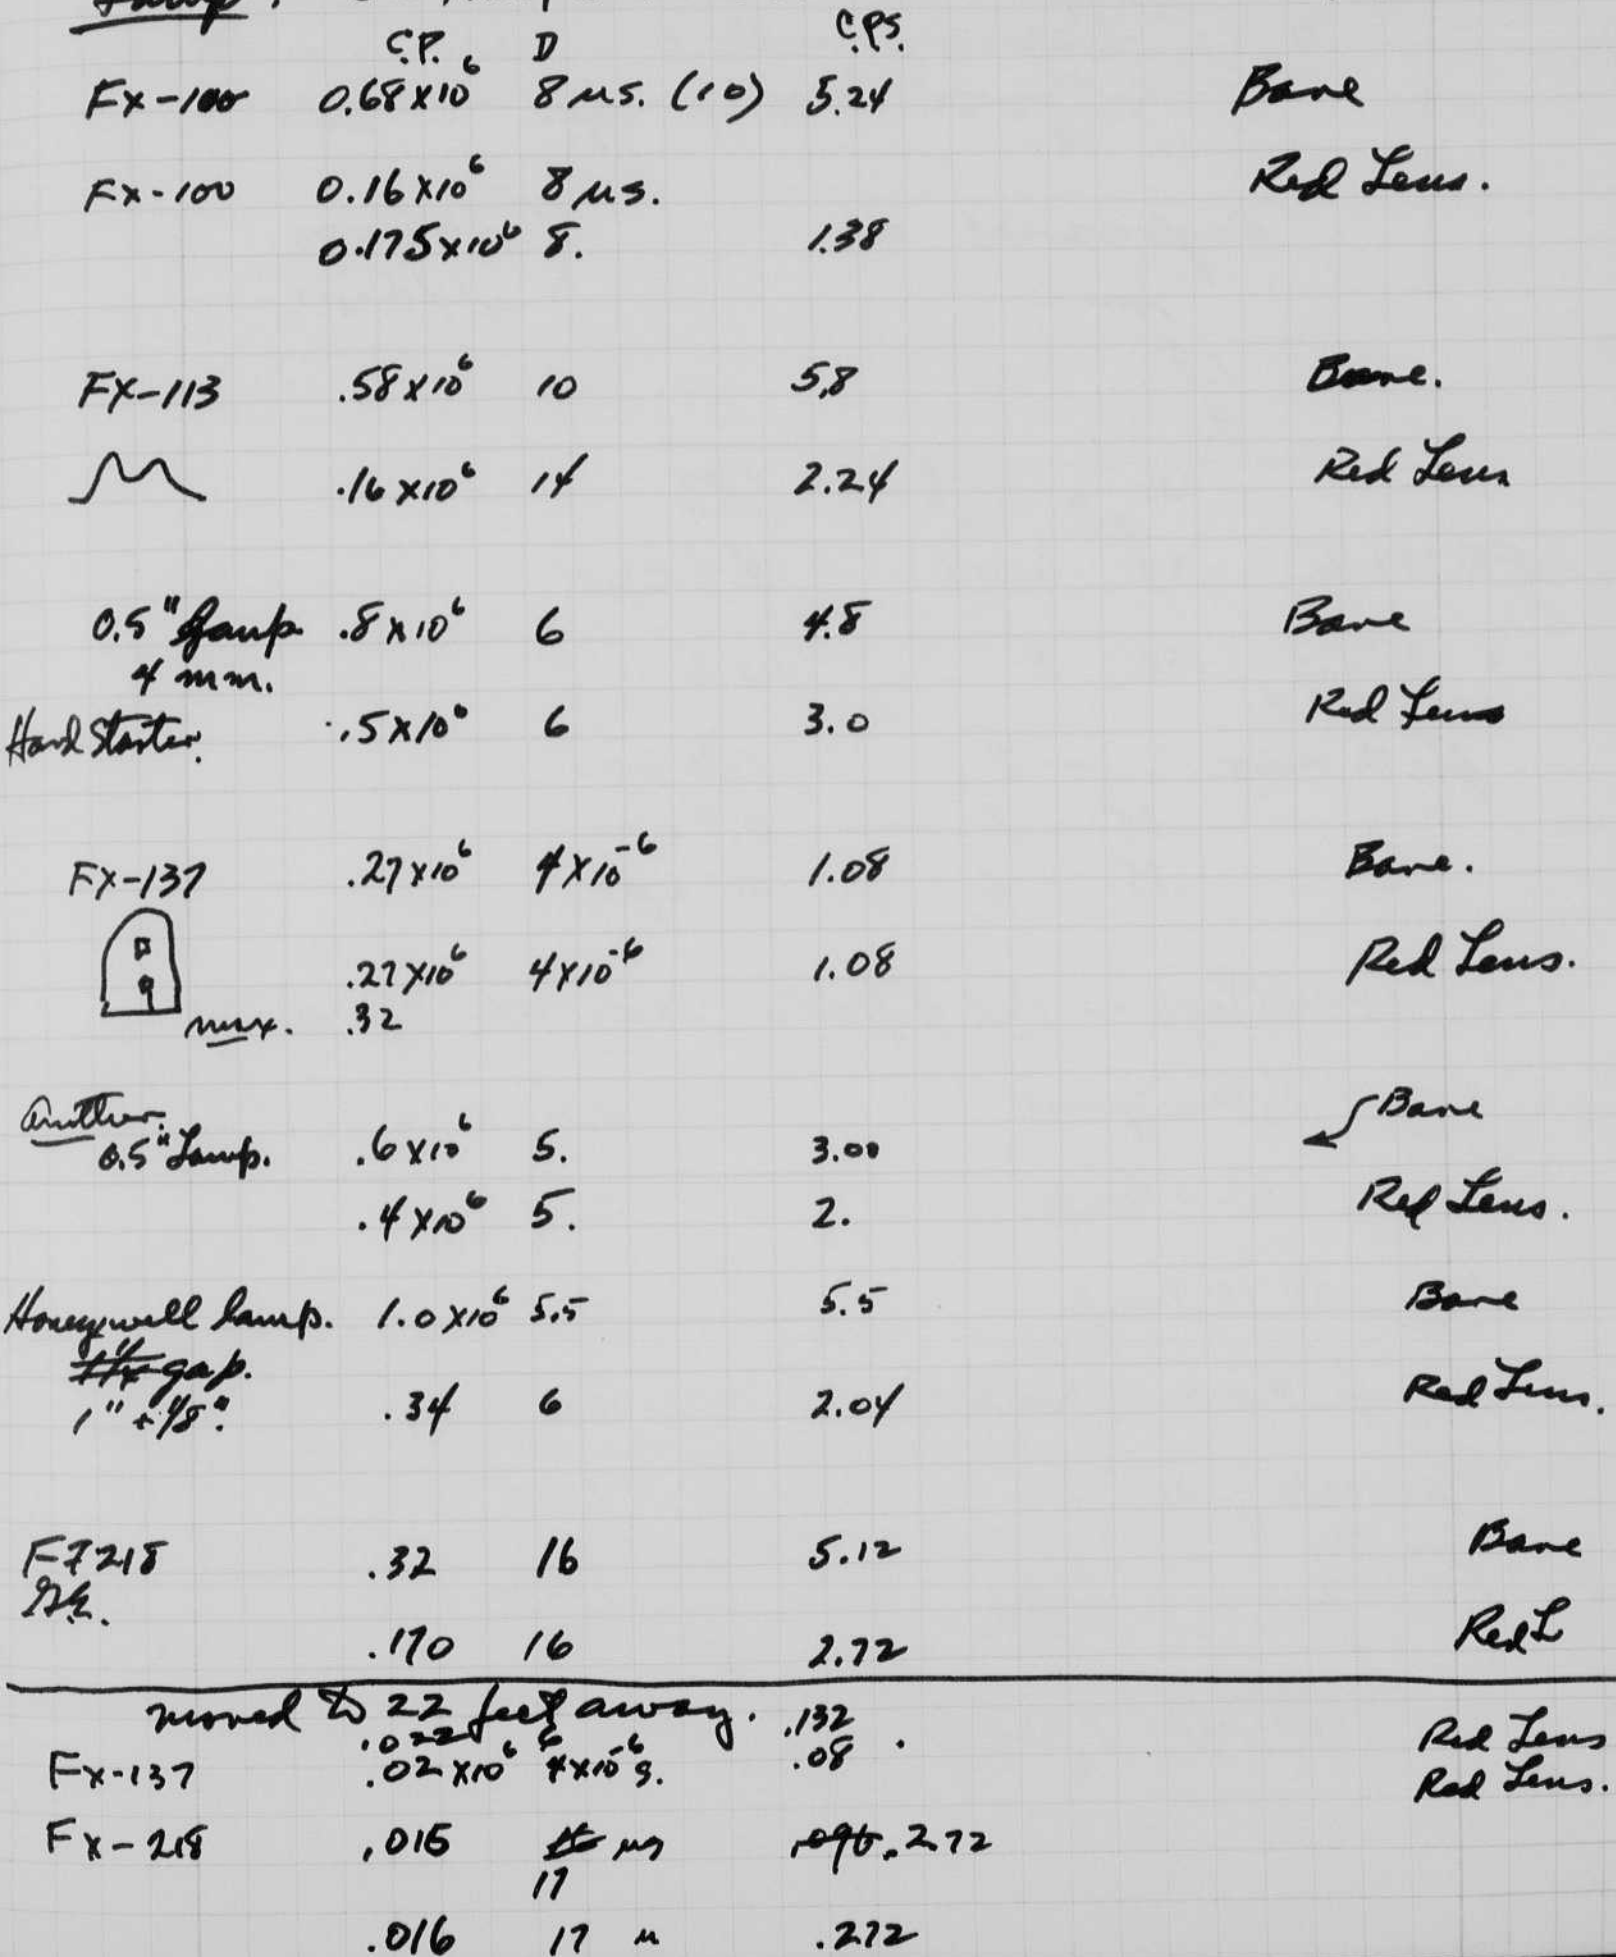 Lamp.
C.P. D C.P.S.
FX-100 0.68×10⁶ 8 μs. (10) 5.24 Bare
FX-100 0.16×10⁶ 8 μs. Red Lens.
0.175×10⁶ 8. 1.38
FX-113 .58×10⁶ 10 5.8 Bare.
.16×10⁶ 14 2.24 Red Lens
0.5" Lamp. .8×10⁶ 6 4.8 Bare
4 mm.
Hard Starter. .5×10⁶ 6 3.0 Red Lens
FX-137 .27×10⁶ 4×10⁻⁶ 1.08 Bare.
.27×10⁶ 4×10⁻⁶ 1.08 Red Lens.
max. .32
Another.
0.5" Lamp. .6×10⁶ 5. 3.00 Bare
.4×10⁶ 5. 2. Red Lens.
Honeywell lamp. 1.0×10⁶ 5.5 5.5 Bare
gap.
1" + 1/8". .34 6 2.04 Red Lens.
F7218 .32 16 5.12 Bare
.170 16 2.72 Red L
moved to 22 feet away.
.022 6 .132 Red Lens
FX-137 .02×10⁶ 4×10⁻⁶ s. .08 Red Lens.
FX-218 .015 μs .272
17
.016 17 μ .272